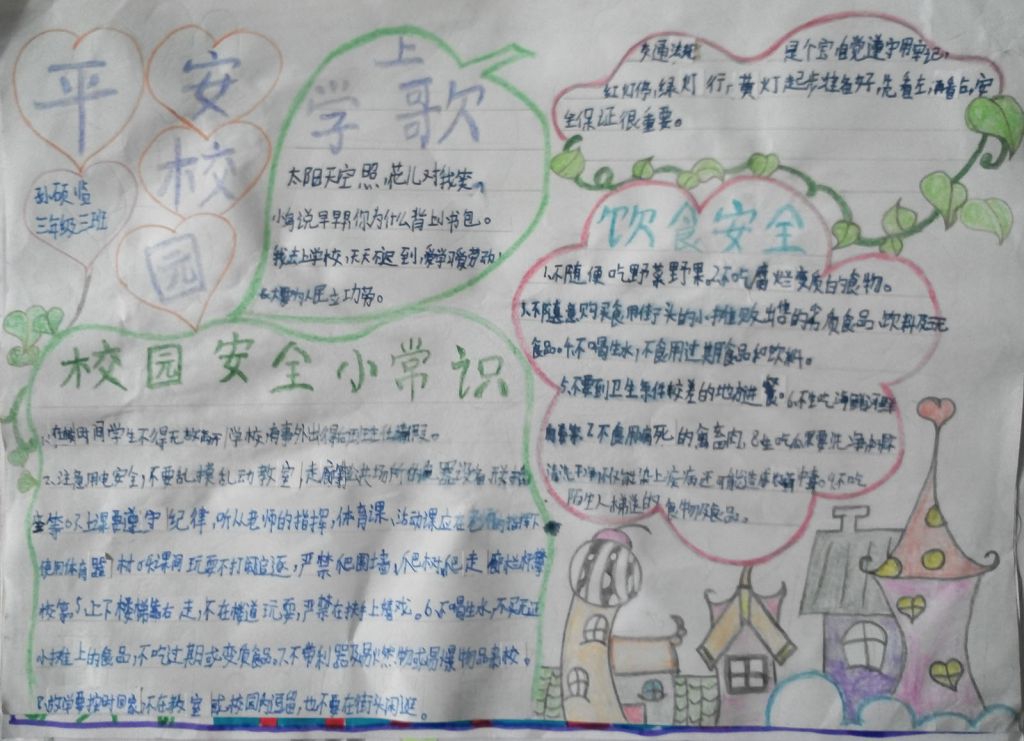 平安
校
园
孙硕
三年级三班
上
学歌
太阳天空照,花儿对我笑。
小鸟说早早早你为什么背上小书包。
我去上学校,天天不迟到,爱学习爱劳动,
长大要为人民立功劳。
交通法规 是个宝 自觉遵守用牢记,
红灯停,绿灯行,黄灯起步准备好,先看左,再看右,安
全保证很重要。
饮食安全
1.不随便吃野菜野果。2.不吃腐烂变质的食物。
3.不随意购买食用街头的小摊贩出售的劣质食品、饮料及
食品。4.不喝生水,不食用过期食品和饮料。
5.不要到卫生条件较差的地方进餐。6.不生吃海鲜
7.不食用病死的禽畜肉,8.生吃瓜果要洗净
清洗不净 染上疾病还可能造成 中毒。9.不吃
陌生人 的食物及食品。
校园安全小常识
1. 间学生不得无故离开学校有事外出 班主任 假。
2.注意用电安全,不要乱摸乱动教室、走廊 场所的电器设备
等。3.上课要遵守纪律,听从老师的指挥,体育课、活动课应在老师的指挥下
使用体育器材。4.课间玩耍不打闹追逐,严禁爬围墙、爬树、爬走廊栏杆攀
校 5.上下楼梯靠右走,不在楼道玩耍,严禁在扶梯上嬉戏。6.不喝生水,不买无证
小摊上的食品,不吃过期或变质食品。7.不带利器及易燃物或易爆物品来校。
8.放学要按时回家,不在教室或校园内逗留,也不要在街头闲逛。